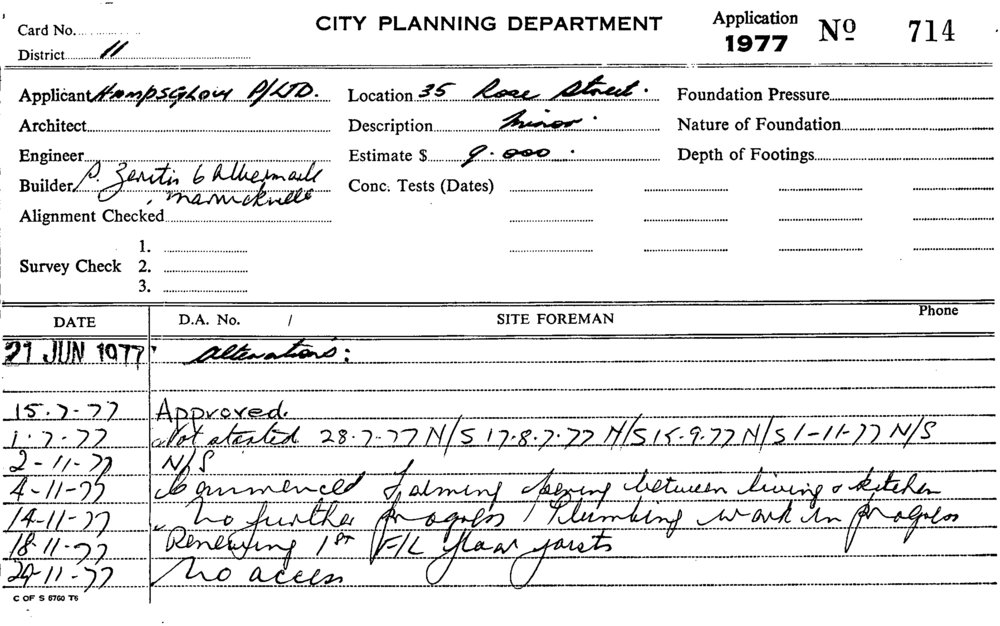 CITY PLANNING DEPARTMENT
Card No.
District 11
Application 1977 Nº 714
Applicant P/LTD.
Location 35 Rose Street.
Foundation Pressure
Architect
Description Minor.
Nature of Foundation
Engineer
Estimate $ 9.000.
Depth of Footings
Builder 6 Albermarle
Marrickville
Conc. Tests (Dates)
Alignment Checked
Survey Check
1.
2.
3.
DATE D.A. No. / SITE FOREMAN Phone
21 JUN 1977 Alterations:
15.7-77 Approved.
1.7-77 Not started 28-7-77 N/S 17.8.7.77 N/S 15.9.77 N/S 1-11-77 N/S
2-11-77 N/S
4-11-77 Commenced forming opening between living & kitchen
14-11-77 No further progress / Plumbing work in progress
18-11-77 Renewing 1st F/L floor joists
29-11-77 No access
C OF S 5760 T6